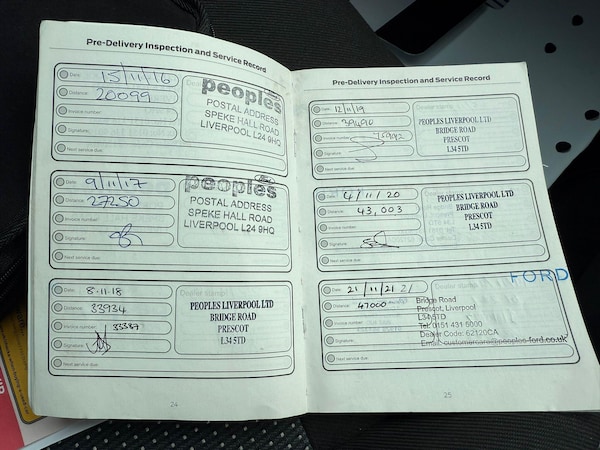 Pre-Delivery Inspection and Service Record
Date: 15/11/16
Distance: 20099
Invoice number:
Signature:
Next service due:
peoples
POSTAL ADDRESS
SPEKE HALL ROAD
LIVERPOOL L24 9HQ
Date: 9/11/17
Distance: 27250
Invoice number:
Signature:
Next service due:
peoples
POSTAL ADDRESS
SPEKE HALL ROAD
LIVERPOOL L24 9HQ
Date: 8.11.18
Distance: 33934
Invoice number: 33387
Signature:
Next service due:
PEOPLES LIVERPOOL LTD
BRIDGE ROAD
PRESCOT
L34 5TD
24
Pre-Delivery Inspection and Service Record
Date: 12/11/19
Distance: 39490
Invoice number:
Signature:
Next service due:
PEOPLES LIVERPOOL LTD
BRIDGE ROAD
PRESCOT
L34 5TD
Date: 4/11/20
Distance: 43,003
Invoice number:
Signature:
Next service due:
PEOPLES LIVERPOOL LTD
BRIDGE ROAD
PRESCOT
L34 5TD
Date: 21/11/21
Distance: 47000
Invoice number:
Signature:
Next service due:
FORD
Bridge Road
Prescot, Liverpool
L34 5TD
Tel: 0151 431 5000
Dealer Code: 62120CA
Email: customercare@peoples-ford.co.uk
25